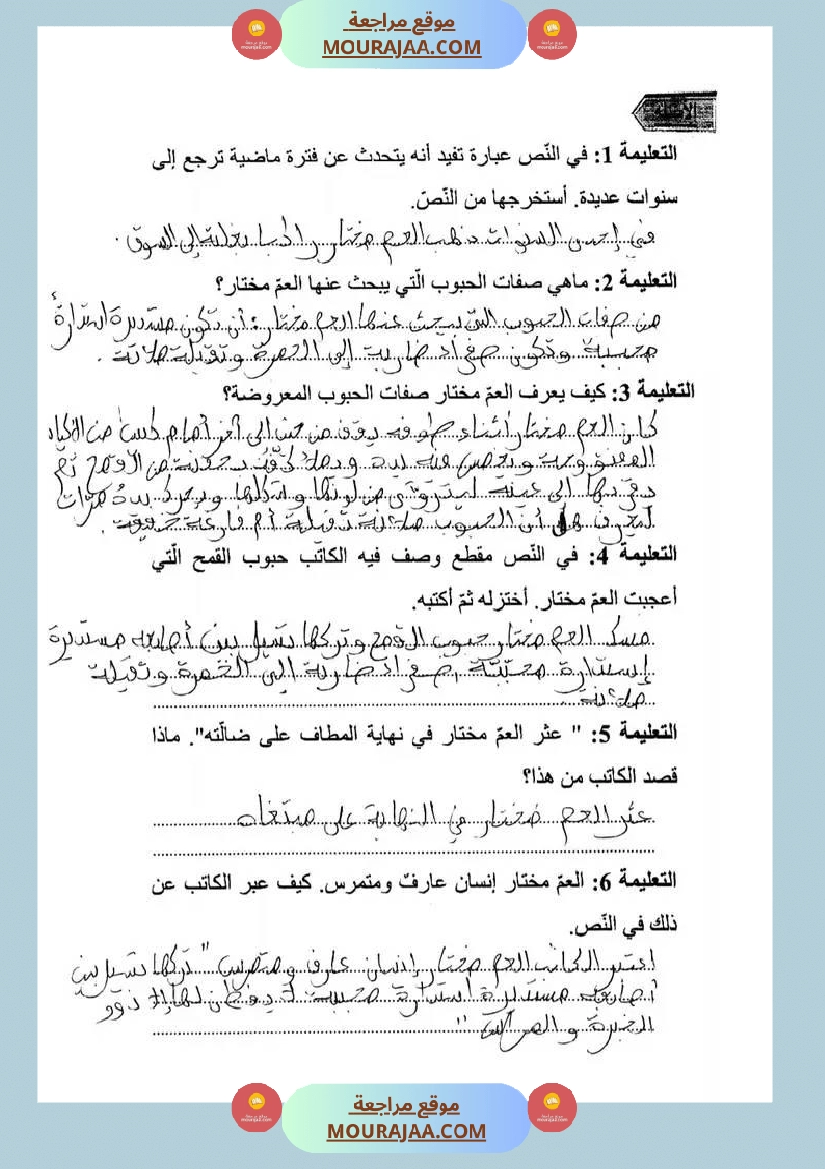 موقع مراجعة
MOURAJAA.COM
الأسئلة
التعليمة 1: في النّص عبارة تفيد أنه يتحدث عن فترة ماضية ترجع إلى
سنوات عديدة. أستخرجها من النّصّ.
في إحدى السنوات ذهب العم مختار راكبا بغلته إلى السوق.
التعليمة 2: ماهي صفات الحبوب الّتي يبحث عنها العمّ مختار؟
من صفات الحبوب التي يبحث عنها العم مختار: أن تكون مستديرة استدارة
محببة وتكون صفراء ضاربة إلى الحمرة وثقيلة ملآنة.
التعليمة 3: كيف يعرف العمّ مختار صفات الحبوب المعروضة؟
كان العم مختار أثناء طوافه يقف من حين إلى آخر أمام كيس من الأكياس
المفتوحة و فيه يده و بحفنة من القمح ثم
يقربها الى عينيه من لونها و يحرك يده مرات
ليعرف هل أن الحبوب ملآنة ثقيلة أم فارغة خفيفة.
التعليمة 4: في النّص مقطع وصف فيه الكاتب حبوب القمح الّتي
أعجبت العمّ مختار. أختزله ثمّ أكتبه.
مسك العم مختار حبوب القمح وتركها تسيل بين أصابعه مستديرة
إستدارة محببة صفراء ضاربة الى الحمرة وثقيلة
ملآنة
التعليمة 5: " عثر العمّ مختار في نهاية المطاف على ضالّته". ماذا
قصد الكاتب من هذا؟
عثر العم مختار في النهاية على مبتغاه
التعليمة 6: العمّ مختار إنسان عارفٌ ومتمرس. كيف عبر الكاتب عن
ذلك في النّص.
اعتبر الكاتب العم مختار إنسان عارف و متمرس " تركها تسيل بين
أصابعه مستديرة استدارة محببة لا يفطن لها إلا ذوو
الخبرة و "
موقع مراجعة
MOURAJAA.COM